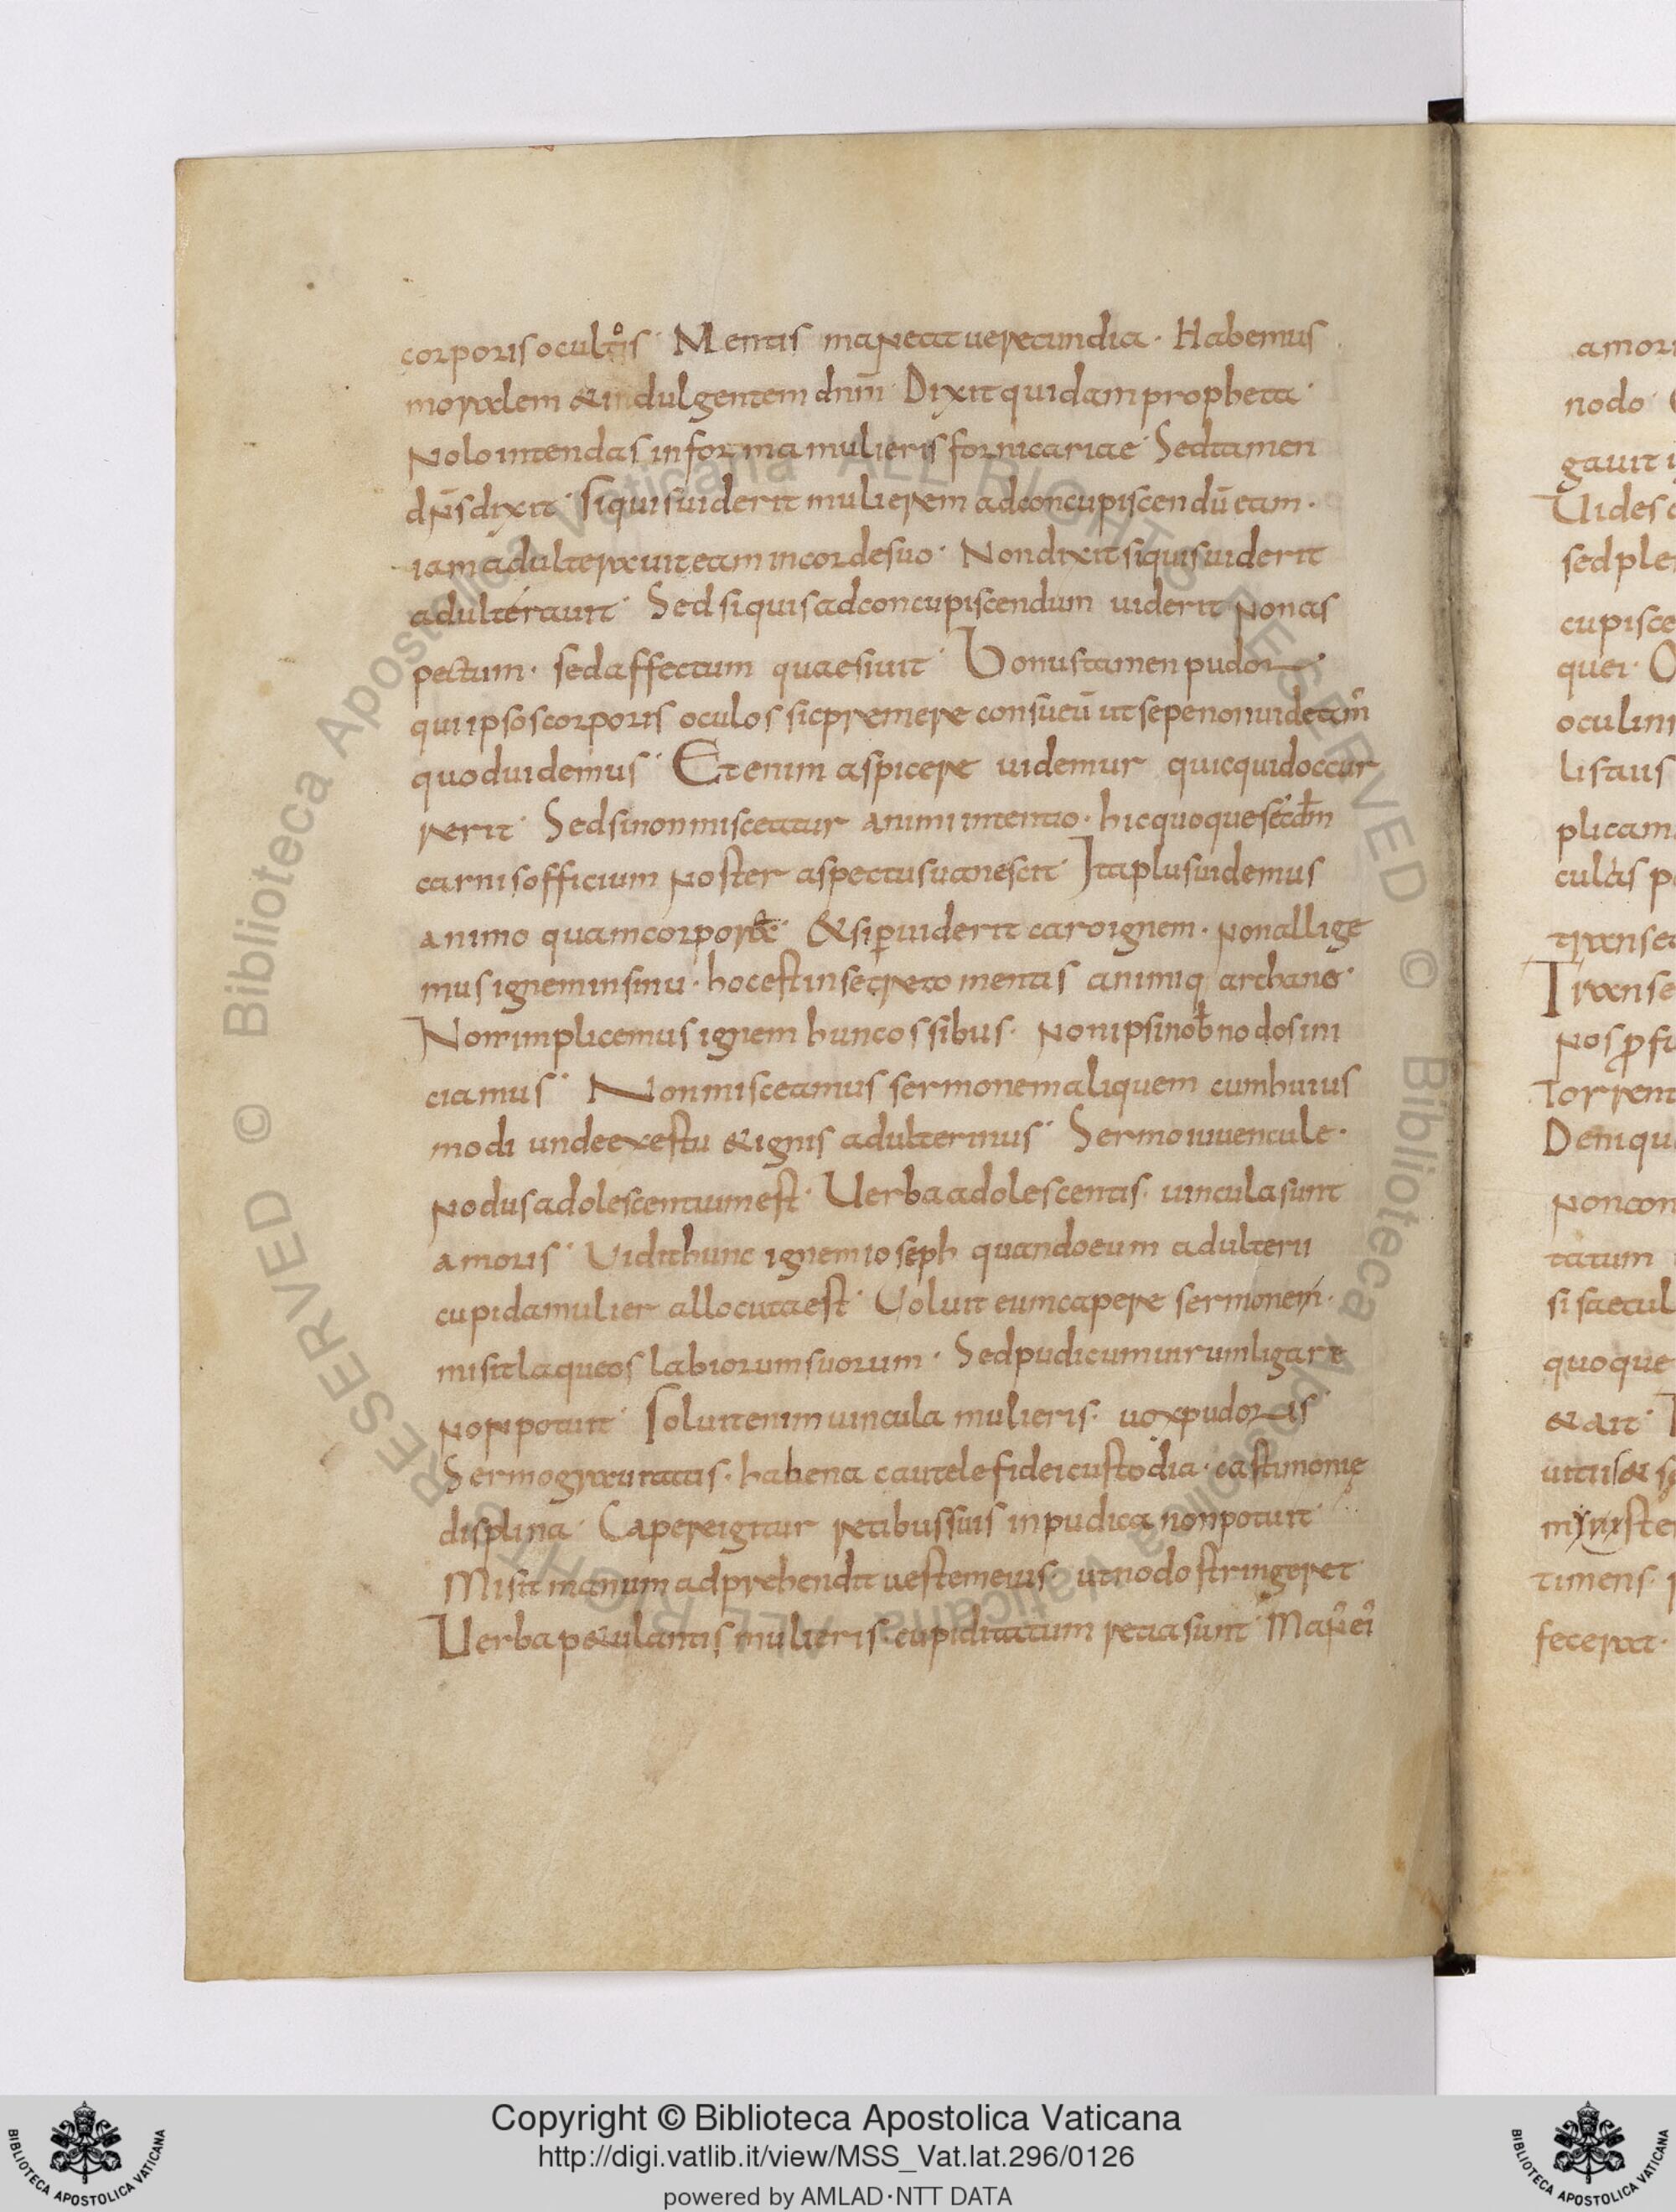 corporis ocultos· Mentis maneat uerecundia· Habemus
moralem & indulgentem dnm̄· Dixit quidam propheta·
Nolo intendas in forma mulieris fornicariae· Sed tamen
dn̄s dixit· Si quis uiderit mulierem ad concupiscendū eam·
iam adulterauit eam in corde suo· Non dixit si quis uiderit
adulterauit· Sed si quis ad concupiscendum uiderit Non as
pectum· sed affectum quaesiuit· Bonus tamen pudor·
qui ipsos corporis oculos sic premere consueū ut sepe non uideam
quod uidemus· Et enim aspicere uidemur quicquid occur
rerit· Sed si non misceatur animi intentio· hic quoque secdm
carnis officium Noster aspectus uanescit· Ita plus uidemus
animo quam corpore· & si ꝑuiderit caro ignem· Non allige
mus ignem in sinu· hoc est in secreto mentis animiq; archano·
Non implicemus ignem hunc ossibus· Non ipsi nob̄ nodos ini
ciamus· Non misceamus sermonem aliquem cum huius
modi unde exestu & ignis adulterinus· Sermo iuuencule·
Nodus adolescentium est· Uerba adolescentis· uincula sunt
amoris· Uidit hunc ignem ioseph quando eum adulterii
cupida mulier allocuta est· Uoluit eum capere sermonem·
misit laqueos labiorum suorum· Sed pudicum uirum ligare
Non potuit· Soluit enim uincula mulieris· uox pudoris
Sermo grauitatis· habena cautele fidei custodia· castimonię
displina· Capere igitur retibus suis inpudica non potuit·
Misit manum adprehendit uestem eius· ut nodo stringeret·
Uerba p&ulantis mulieris· cupiditatum retia sunt· Man ei
amori
nodo·
gauit i
Uides
sed ple
cupisce
quei·
oculini
listatis
plicam
cultis p
transe
Transe
Nos ꝓfu
Torrent
Deniqu
Non con
tatum
si saecul
quoque
& ait·
uitiis &
timens·
fecerat·
Copyright © Biblioteca Apostolica Vaticana
http://digi.vatlib.it/view/MSS_Vat.lat.296/0126
powered by AMLAD·NTT DATA
BIBLIOTECA APOSTOLICA VATICANA
BIBLIOTECA APOSTOLICA VATICANA
© Biblioteca Apostolica Vaticana ALL RIGHTS RESERVED © Biblioteca Apostolica Vaticana ALL RIGHTS RESERVED